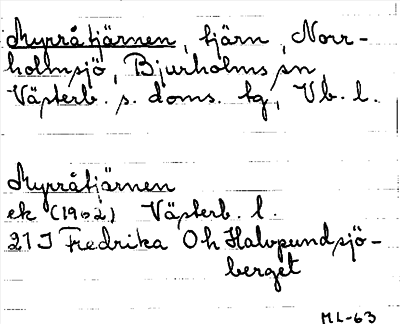 Myrråtjärnen, tjärn, Norr-
holmsjö, Bjurholms sn,
Västerb. s. doms. tg, Vb. l.
Myrråtjärnen
ek (1962) Västerb. l.
21 I Fredrika Oh Halvpundsjö-
berget
ML-63